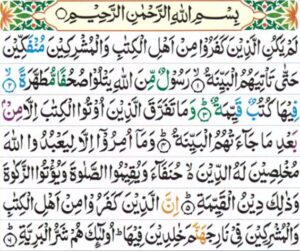 بِسْمِ اللهِ الرَّحْمٰنِ الرَّحِيْمِ
لَمْ يَكُنِ الَّذِيْنَ كَفَرُوْا مِنْ اَهْلِ الْكِتٰبِ وَالْمُشْرِكِيْنَ مُنْفَكِّيْنَ
حَتّٰى تَاْتِيَهُمُ الْبَيِّنَةُ ۙ﴿۱﴾ رَسُوْلٌ مِّنَ اللهِ يَتْلُوْا صُحُفًا مُّطَهَّرَةً ۙ﴿۲﴾
فِيْهَا كُتُبٌ قَيِّمَةٌ ؕ﴿۳﴾ وَمَا تَفَرَّقَ الَّذِيْنَ اُوْتُوا الْكِتٰبَ اِلَّا مِنْۢ
بَعْدِ مَا جَآءَتْهُمُ الْبَيِّنَةُ ؕ﴿۴﴾ وَمَاۤ اُمِرُوْۤا اِلَّا لِيَعْبُدُوا اللهَ
مُخْلِصِيْنَ لَهُ الدِّيْنَ ۙ۬ حُنَفَآءَ وَيُقِيْمُوا الصَّلٰوةَ وَيُؤْتُوا الزَّكٰوةَ
وَذٰلِكَ دِيْنُ الْقَيِّمَةِ ؕ﴿۵﴾ اِنَّ الَّذِيْنَ كَفَرُوْا مِنْ اَهْلِ الْكِتٰبِ
وَالْمُشْرِكِيْنَ فِيْ نَارِ جَهَنَّمَ خٰلِدِيْنَ فِيْهَا ؕ اُولٰٓئِكَ هُمْ شَرُّ الْبَرِيَّةِ ؕ﴿۶﴾